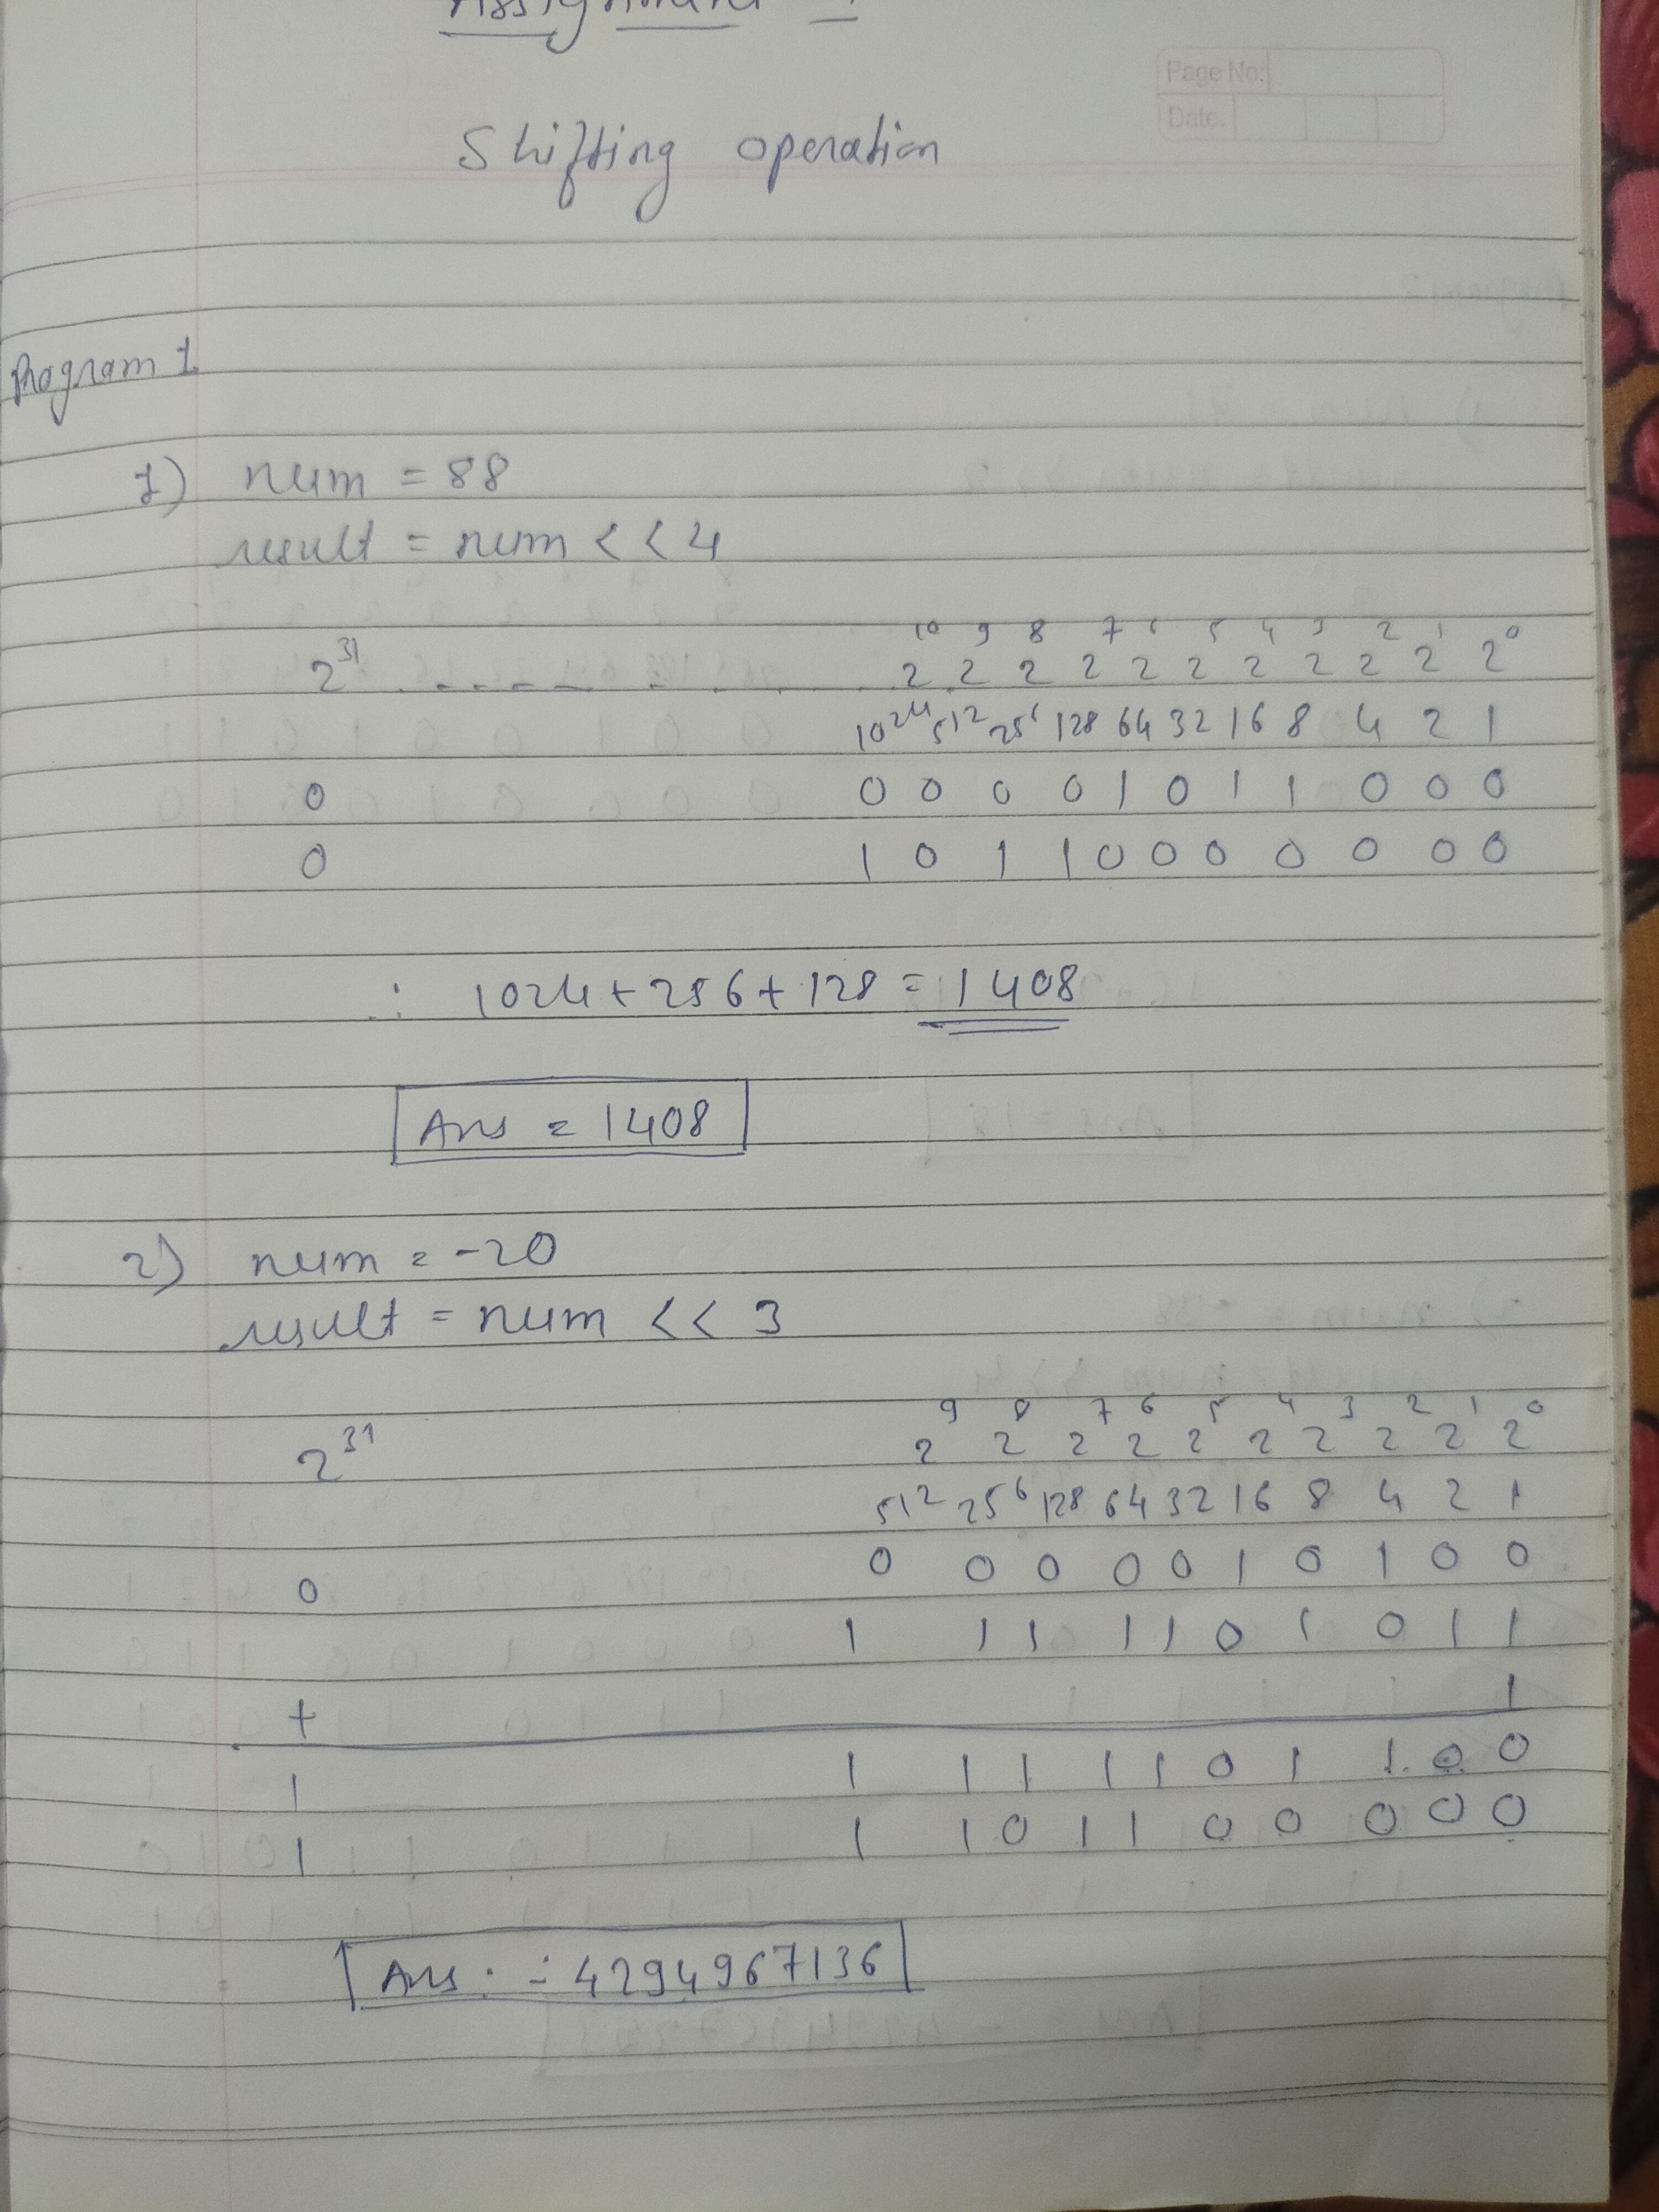 Assignment
Page No:
Date.
Shifting operation
Program 1
1) num = 88
result = num < < 4
10 9 8 7 6 5 4 3 2 1 0
2^31 . - - - - - . . 2 2 2 2 2 2 2 2 2 2 2
1024 512 256 128 64 32 16 8 4 2 1
0 0 0 0 0 1 0 1 1 0 0 0
0 1 0 1 1 0 0 0 0 0 0 0
∴ 1024 + 256 + 128 = 1408
Ans = 1408
2) num = -20
result = num << 3
9 8 7 6 5 4 3 2 1 0
2^31 2 2 2 2 2 2 2 2 2 2
512 256 128 64 32 16 8 4 2 1
0 0 0 0 0 0 1 0 1 0 0
1 1 1 1 1 0 1 0 1 1
+ 1
1 1 1 1 1 1 0 1 1 0 0
1 1 1 0 1 1 0 0 0 0 0
Ans. = 4294967136